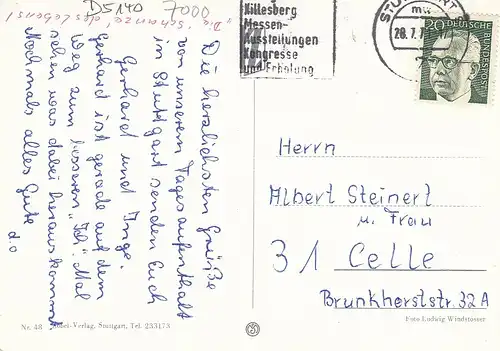 D5140
7000
"Die "Schanze" des Lebens!
Killesberg
Messen-
Ausstellungen
Kongresse
und Erholung
STUTTGART
28.7.7
20 DEUTSCHE
BUNDESPOST
Die herzlichsten Grüße
von unserem Tagesaufenthalt
in Stuttgart senden Euch
Gerhard und Inge.
Gerhard ist gerade auf dem
Weg zum besseren "Ich". Mal
sehen was dabei herauskommt
Nochmals alles Gute
d.o
Herrn
Albert Steinert
u. Frau
31 Celle
Brunkherststr. 32A
Nr. 48
-Verlag, Stuttgart, Tel. 233173
Foto Ludwig Windstosser